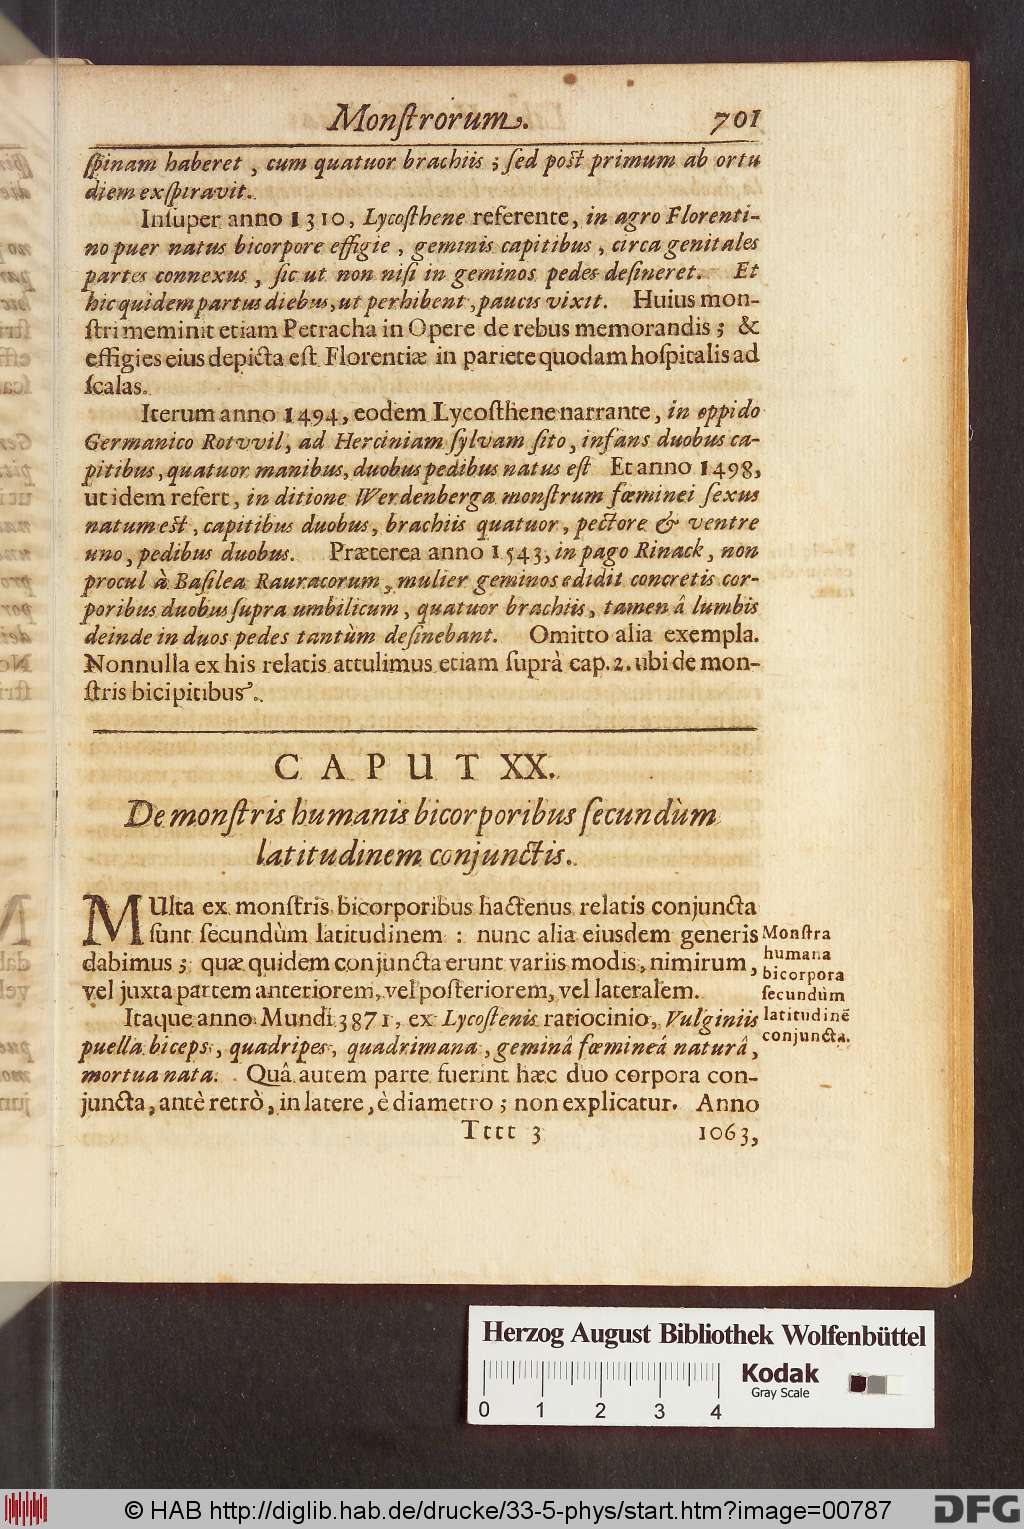 Monſtrorum.
701
ſpinam haberet, cum quatuor brachiis; ſed poſt primum ab ortu
diem exſpiravit.
Inſuper anno 1310, Lycoſthene referente, in agro Florenti-
no puer natus bicorpore effigie, geminis capitibus, circa genitales
partes connexus, ſic ut non niſi in geminos pedes deſineret. Et
hic quidem partus diebus, ut perhibent, paucis vixit. Huius mon-
ſtri meminit etiam Petracha in Opere de rebus memorandis; &
effigies eius depicta eſt Florentiæ in pariete quodam hoſpitalis ad
ſcalas.
Iterum anno 1494, eodem Lycoſthene narrante, in oppido
Germanico Rotvvil, ad Herciniam ſylvam ſito, infans duobus ca-
pitibus, quatuor manibus, duobus pedibus natus eſt Et anno 1498,
ut idem refert, in ditione Werdenberga monſtrum fœminei ſexus
natum eſt, capitibus duobus, brachiis quatuor, pectore & ventre
uno, pedibus duobus. Præterea anno 1543, in pago Rinack, non
procul à Baſilea Rauracorum, mulier geminos edidit concretis cor-
poribus duobus ſupra umbilicum, quatuor brachiis, tamen â lumbis
deinde in duos pedes tantùm deſinebant. Omitto alia exempla.
Nonnulla ex his relatis attulimus etiam ſuprà cap. 2. ubi de mon-
ſtris bicipitibus.
CAPUT XX.
De monſtris humanis bicorporibus ſecundùm
latitudinem conjunctis.
MUlta ex monſtris bicorporibus hactenus relatis conjuncta
ſunt ſecundùm latitudinem : nunc alia eiusdem generis
dabimus; quæ quidem conjuncta erunt variis modis, nimirum,
vel juxta partem anteriorem, vel poſteriorem, vel lateralem.
Monſtra
humana
bicorpora
ſecundùm
latitudinē
conjuncta.
Itaque anno Mundi 3871, ex Lycoſtenis ratiocinio, Vulginiis
puella biceps, quadripes, quadrimana, geminâ fœmineá naturâ,
mortua nata. Quâ autem parte fuerint hæc duo corpora con-
juncta, antè retrò, in latere, è diametro; non explicatur. Anno
Tttt 3
1063,
Herzog August Bibliothek Wolfenbüttel
Kodak
Gray Scale
0 1 2 3 4
© HAB http://diglib.hab.de/drucke/33-5-phys/start.htm?image=00787
DFG